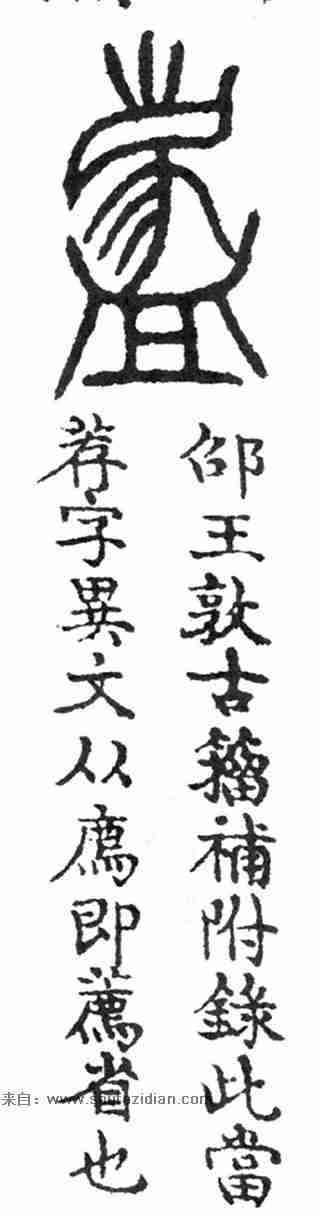 邵王敦古籀補附錄此當
荐字異文从廌即薦省也
来自：www.shufazidian.com